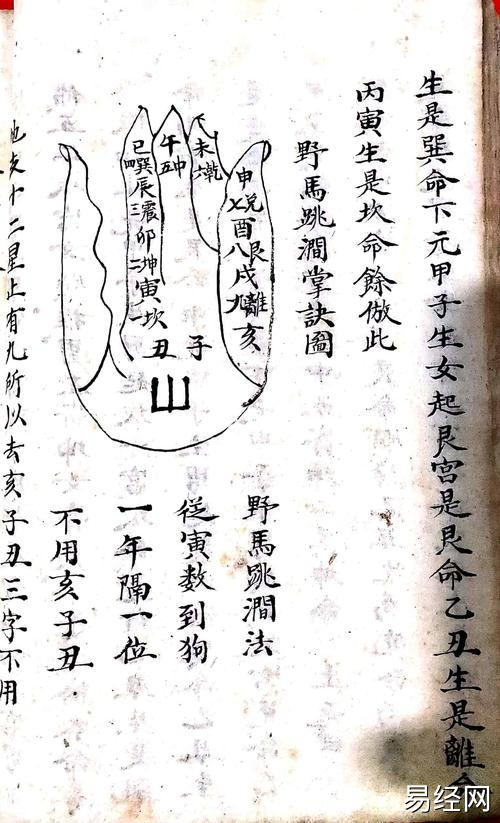 生是巽命下元甲子生女起艮宮是艮命乙丑生是離命
丙寅生是坎命餘倣此
野馬跳澗掌訣圖
巳巽四
辰震三
卯坤二
寅坎一
午中五
未乾六
申兌七
酉艮八
戌離九
亥
子
丑
山
野馬跳澗法
從寅數到狗
一年隔一位
不用亥子丑
十二星止有九所以去亥子丑三字不用
易经网